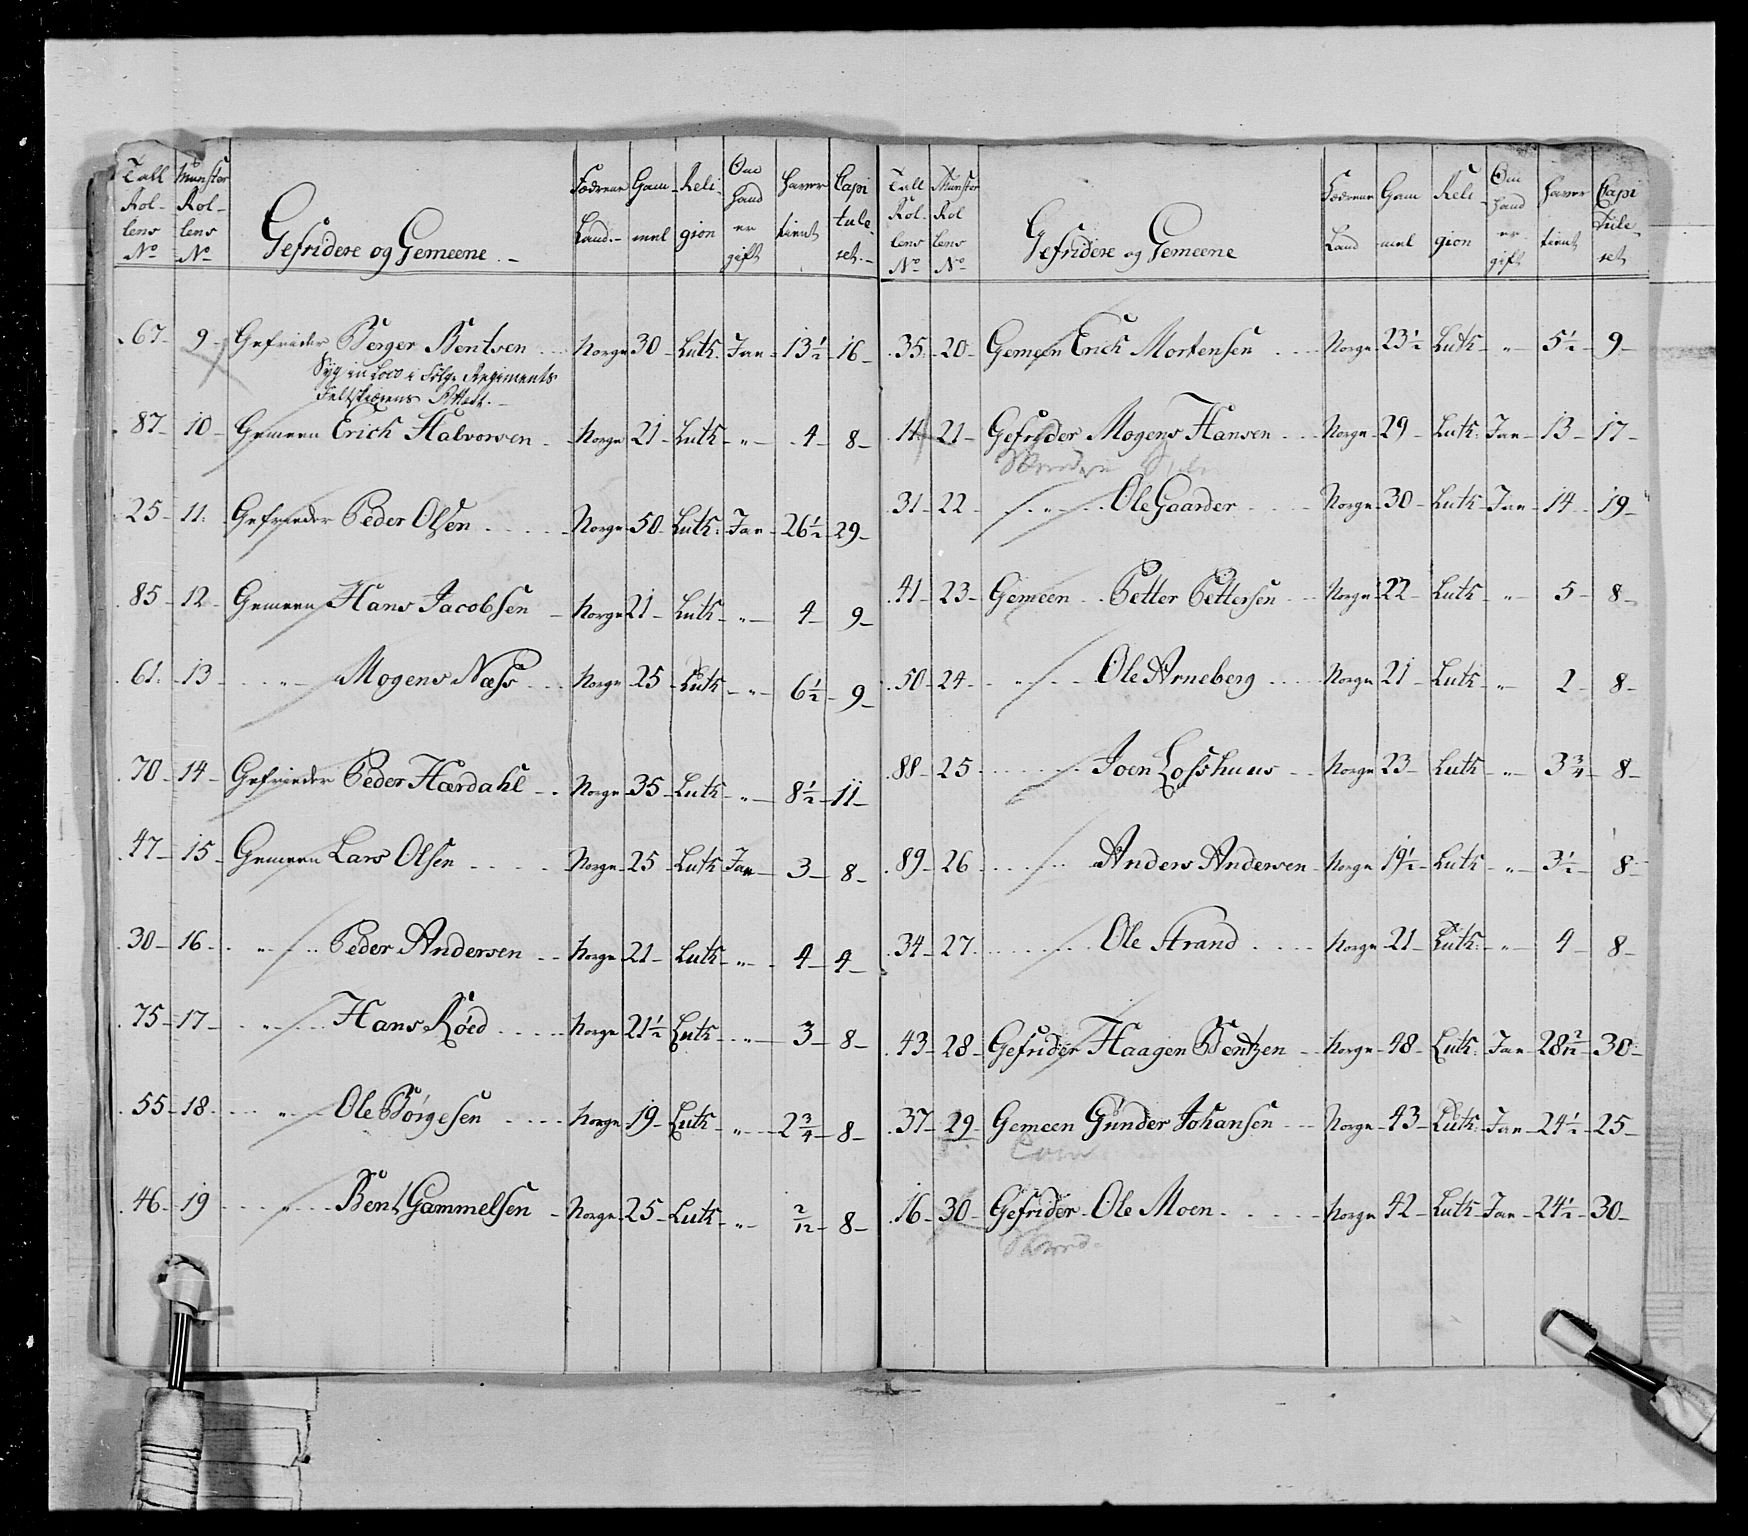 Tall Rol- lens No | Munster Rol- lens No | Gefridere og Gemeene | Fædrene Land | Gam- mel | Reli- gion | Om hand er gift | haver tient | Capi tule- ret
67 - 9 - Gefrider Berger Bentsen - Norge - 30 - Luth. - Jae - 13 1/2 - 16
Syg in Loco i Følge Regiments
Feltskiærens Attest.
87 - 10 - Gemeen Erich Halvorsen - Norge - 21 - Luth - " - 4 - 8
25 - 11 - Gefrieder Peder Olsen - Norge - 50 - Luth: - Jae - 26 1/2 - 29
85 - 12 - Gemeen Hans Jacobsen - Norge - 21 - Luth - " - 4 - 9
61 - 13 - " - Mogens Næss - Norge - 25 - Luth - " - 6 1/2 - 9
70 - 14 - Gefrieder Peder Hærdahl - Norge - 35 - Luth - " - 8 1/2 - 11
47 - 15 - Gemeen Lars Olsen - Norge - 25 - Luth - Jae - 3 - 8
30 - 16 - " - Peder Andersen - Norge - 21 - Luth - " - 4 - 4
75 - 17 - " - Hans Röed - Norge - 21 1/2 - Luth - " - 3 - 8
55 - 18 - " - Ole Börgesen - Norge - 19 - Luth - " - 2 3/4 - 8
46 - 19 - " - Bent Gammelsen - Norge - 25 - Luth - " - 2/12 - 8
Tall Rol- lens No | Munster Rol lens No | Gefridere og Gemeene | Fædrene Land | Gam mel | Reli gion | Om hand er gift | haver tient | Capi tule- ret
35 - 20 - Gemeen Erich Mortensen - Norge - 23 1/2 - Luth - " - 5 1/2 - 9
14 - 21 - Gefrider Mogens Hansen - Norge - 29 - Luth: - Jae - 13 - 17
31 - 22 - " - Ole Gaarder - Norge - 30 - Luth - Jae - 14 - 19
41 - 23 - Gemeen Petter Pettersen - Norge - 22 - Luth - " - 5 - 8
50 - 24 - " - Ole Arneberg - Norge - 21 - Luth - " - 2 - 8
88 - 25 - Joen Losshuus - Norge - 23 - Luth - " - 3 3/4 - 8
89 - 26 - Anders Andersen - Norge - 19 1/2 - Luth - " - 3 1/2 - 8
34 - 27 - Ole Strand - Norge - 21 - Luth: - " - 4 - 8
43 - 28 - Gefrider Haagen Bentzen - Norge - 48 - Luth: - Jae - 28 2/12 - 30
37 - 29 - Gemeen Gunder Johansen - Norge - 43 - Luth: - Jae - 24 1/2 - 25
16 - 30 - Gefrider Ole Moen - Norge - 42 - Luth - Jae - 24 1/2 - 30